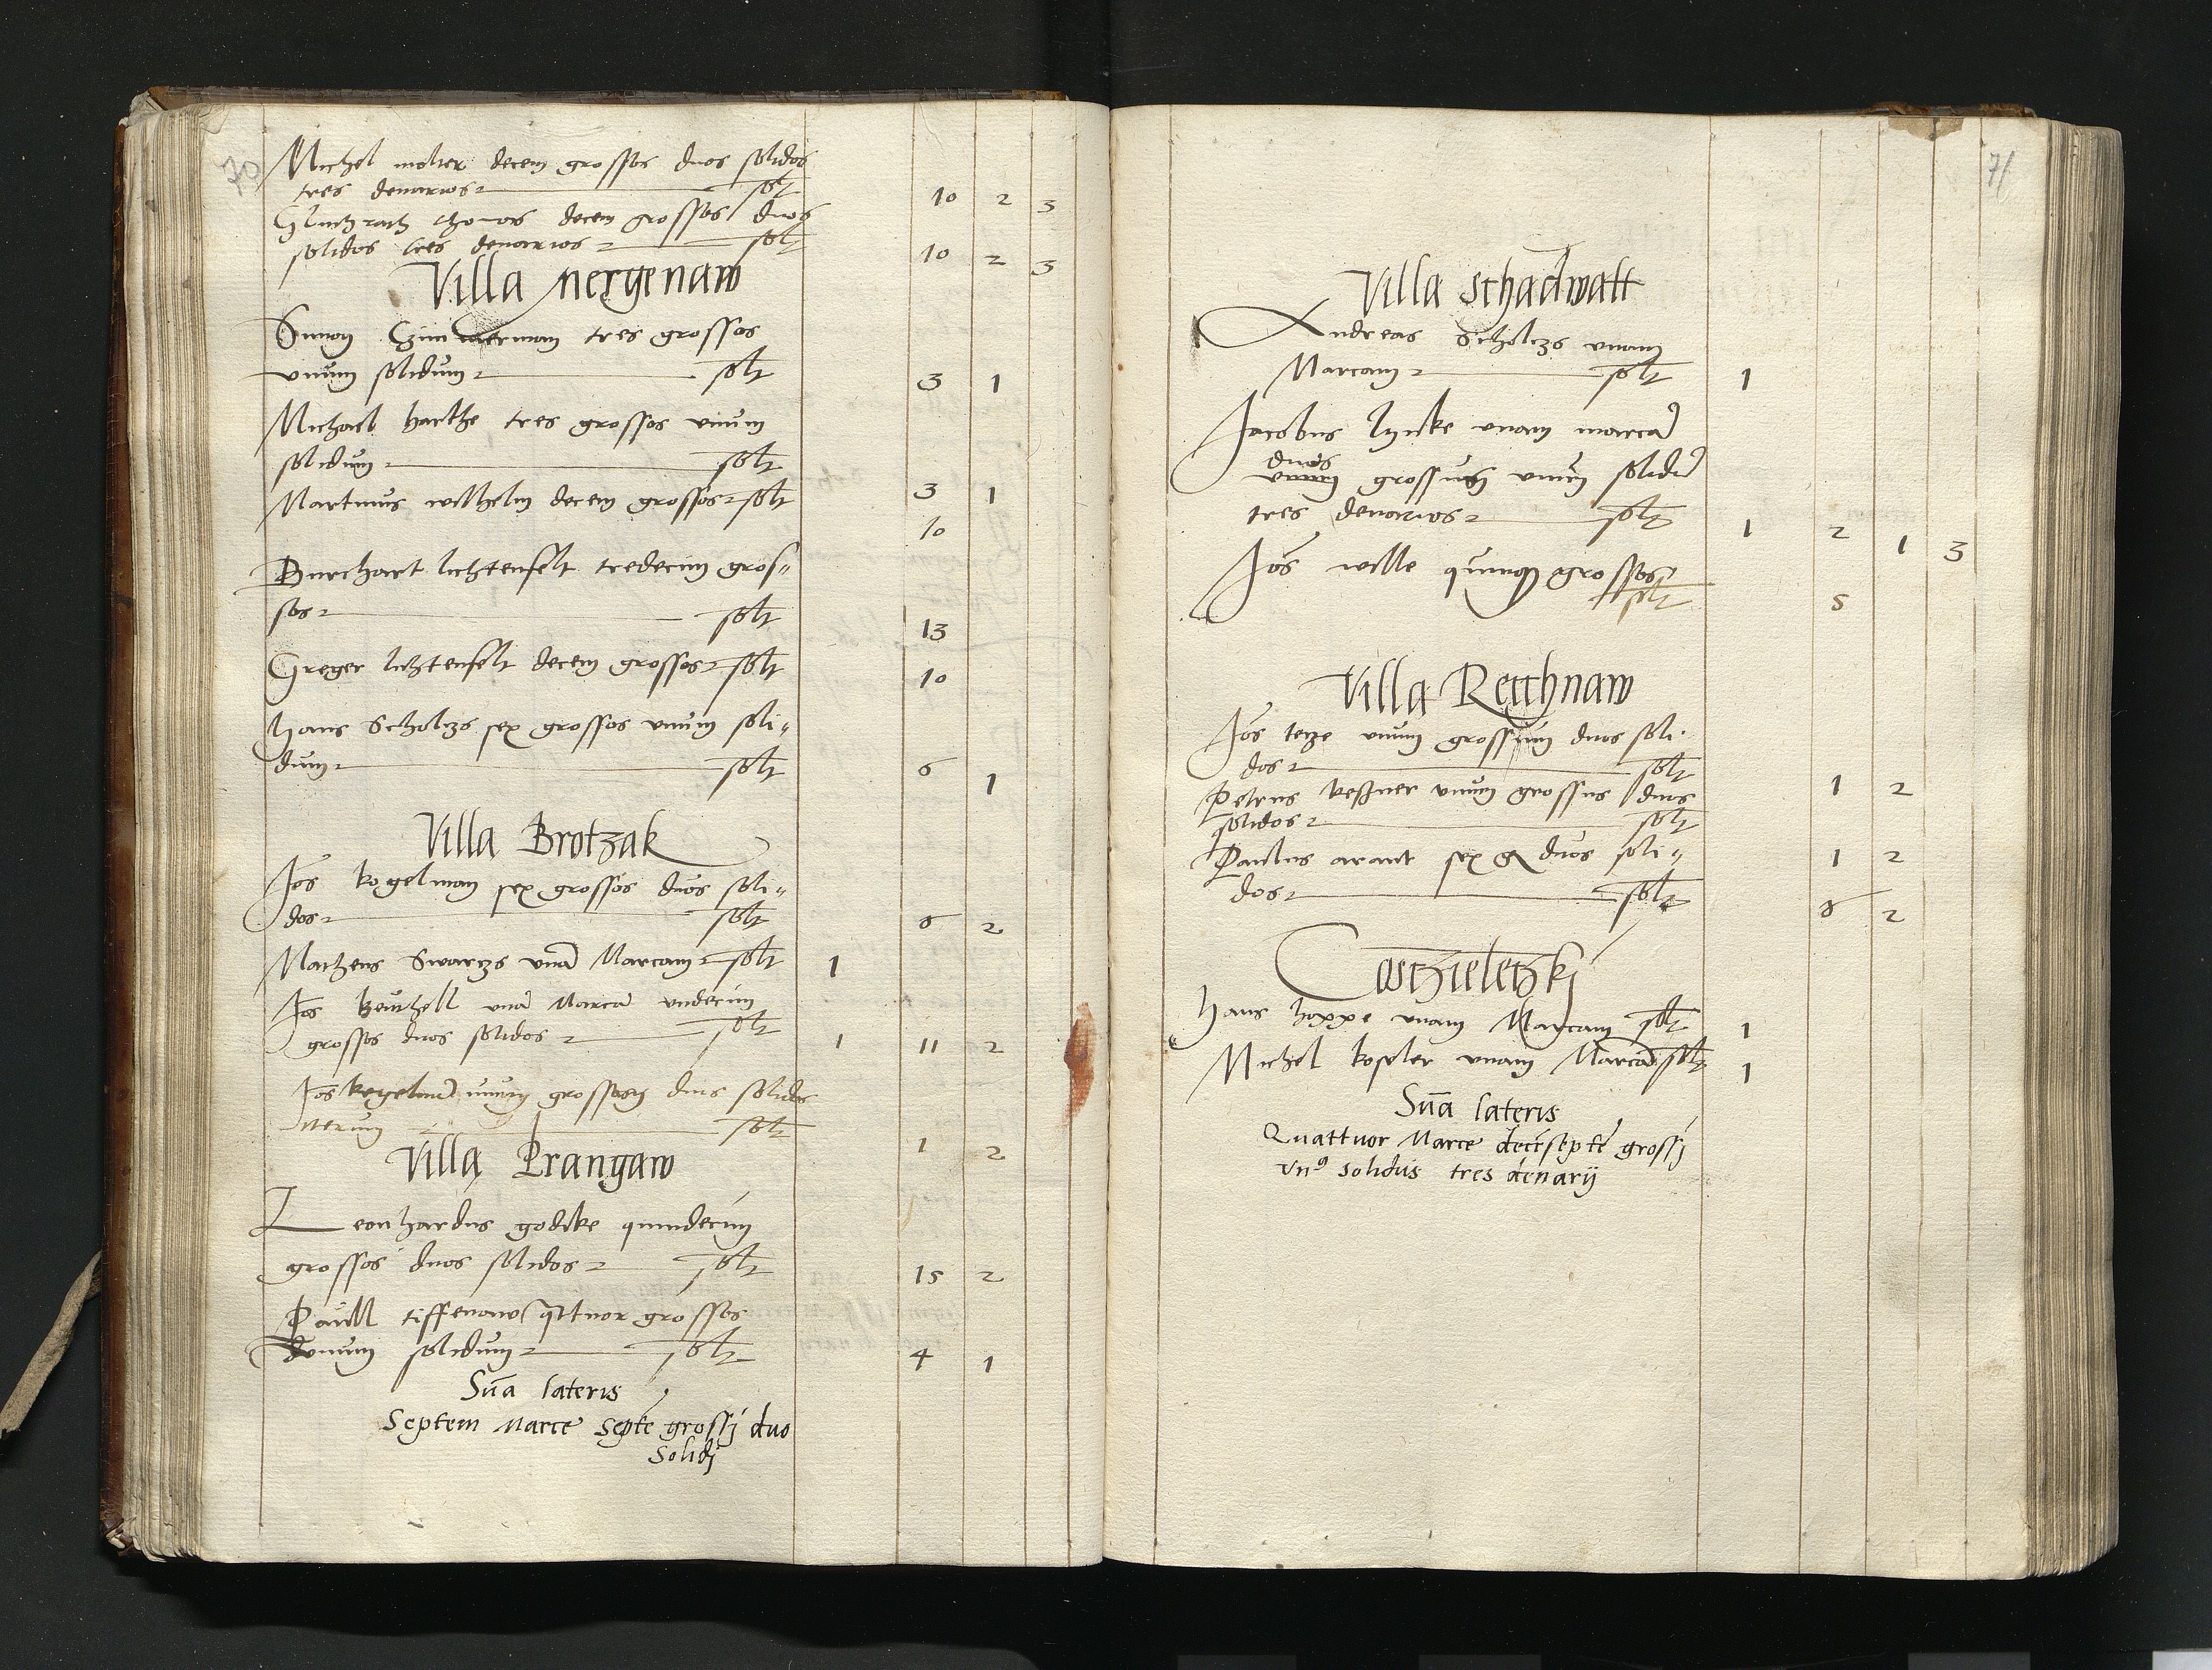 70
Michel molner decem grossos duos solidos
tres denarios solt 10 2 3
thomas decem grossos duos
solidos tres denarios solt 10 2 3
Villa nergenaw
Simon Czimmerman tres grossos
vnum solidum solt 3 1
Michael harthe tres grossos vnum
solidum solt 3 1
Martinus wilhelm decem grossos solt 10
Burchart lichtenfelt tredecim gros„
sos solt 13
Greger lichtenfelt decem grossos solt 10
hans Scholczs sex grossos vnum soli„
dum solt 6 1
Villa Brotzak
Jos kogelman sex grossos duos soli„
dos solt 6 2
Matheus Swarczs vnā Marcam solt 1
Jos vnā Marcā vndecim
grossos duos solidos solt 1 11 2
Jos kogelmā vnum grossum duos solidos
iterum solt 1 2
Villa Prangaw
Leonhardus godike quindecim
grossos duos solidos solt 15 2
Paull tiffenaw qttuor grossos
vnum solidum solt 4 1
Sūa lateris
Septem Marce Septē grossj duo
Solidj
71
Villa Schadwalt
Andreas Scholczs vnam
Marcam solt 1
Jacobus lynke vnam marcā
duos
vnum grossum vnum solidū
tres denarios solt 1 2 1 3
Jos wille quinqȝ grossos
solt 5
Villa Retthnaw
Jos tecze vnum grossum duos soli-
dos solt 1 2
Petrus keßner vnum grossus duos
solidos solt 1 2
Paulus arant sex g duos soli„
dos solt 6 2
Costzieletzkj
Hans hoppe vnam Marcam solt 1
Michel kosler vnam Marcā solt 1
Sūa lateris
Quattuor Marce decēseptē grossj
Vnꝰ Solidus tres denarij